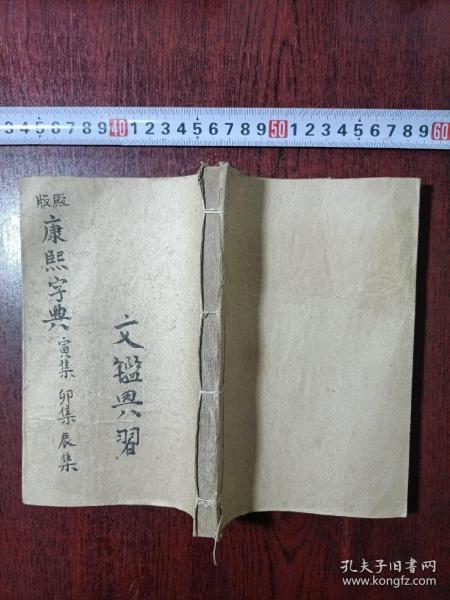 3 4 5 6 7 8 9 40 1 2 3 4 5 6 7 8 9 50 1 2 3 4 5 6 7 8 9 60
殿版
康熙字典
寅集 卯集 辰集
文鑑與習
孔夫子旧书网
www.kongfz.com